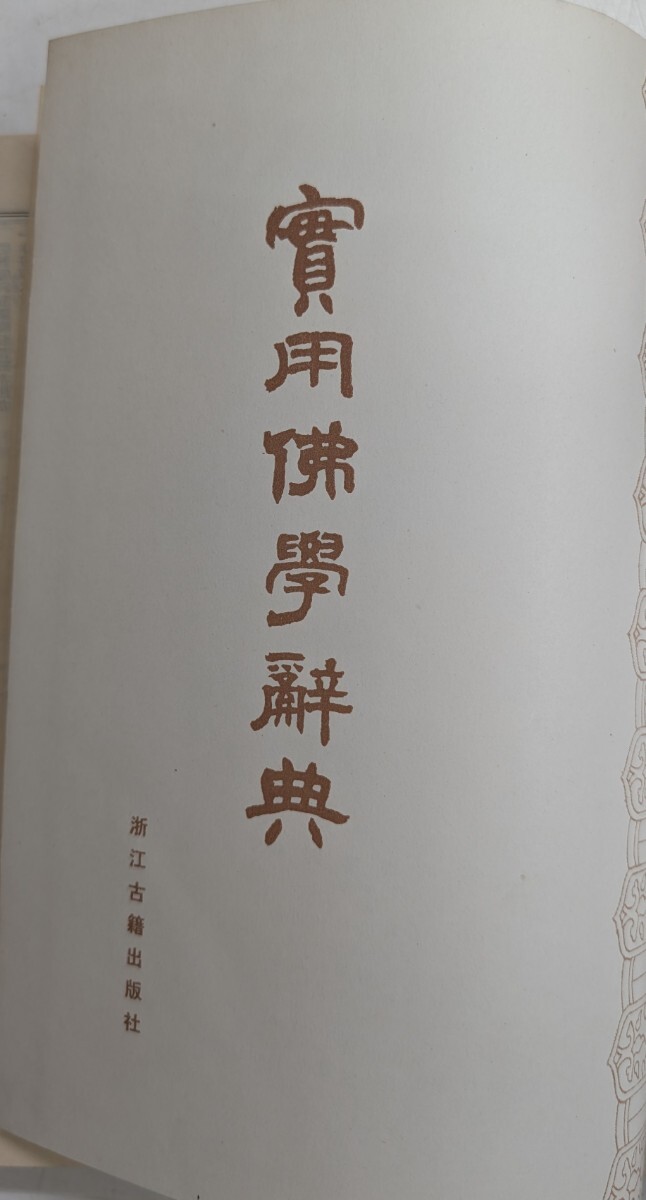 實用佛學辭典
浙江古籍出版社